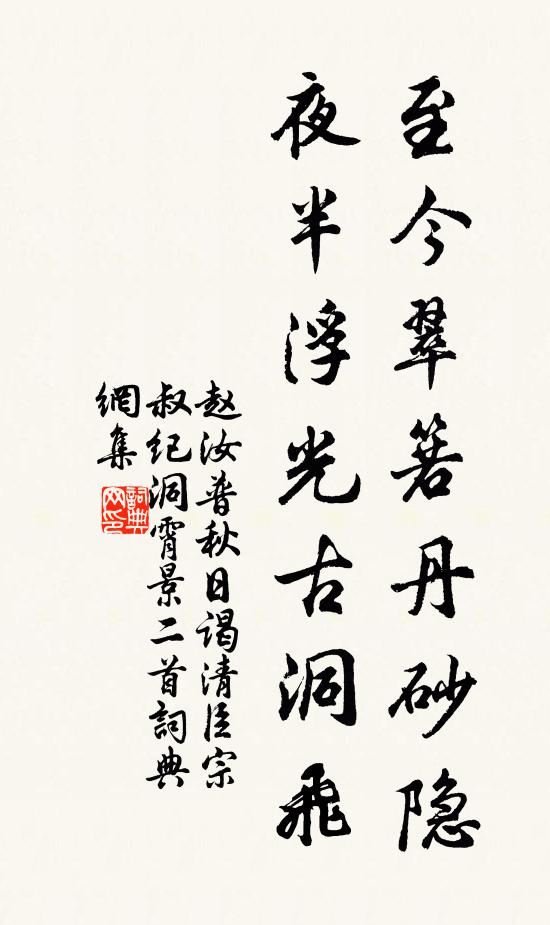 至今翠箬丹砂隐
夜半浮光古洞飛
赵汝普秋日谒清臣宗
叔纪洞霄景二首詞典
網集
詞典
网印